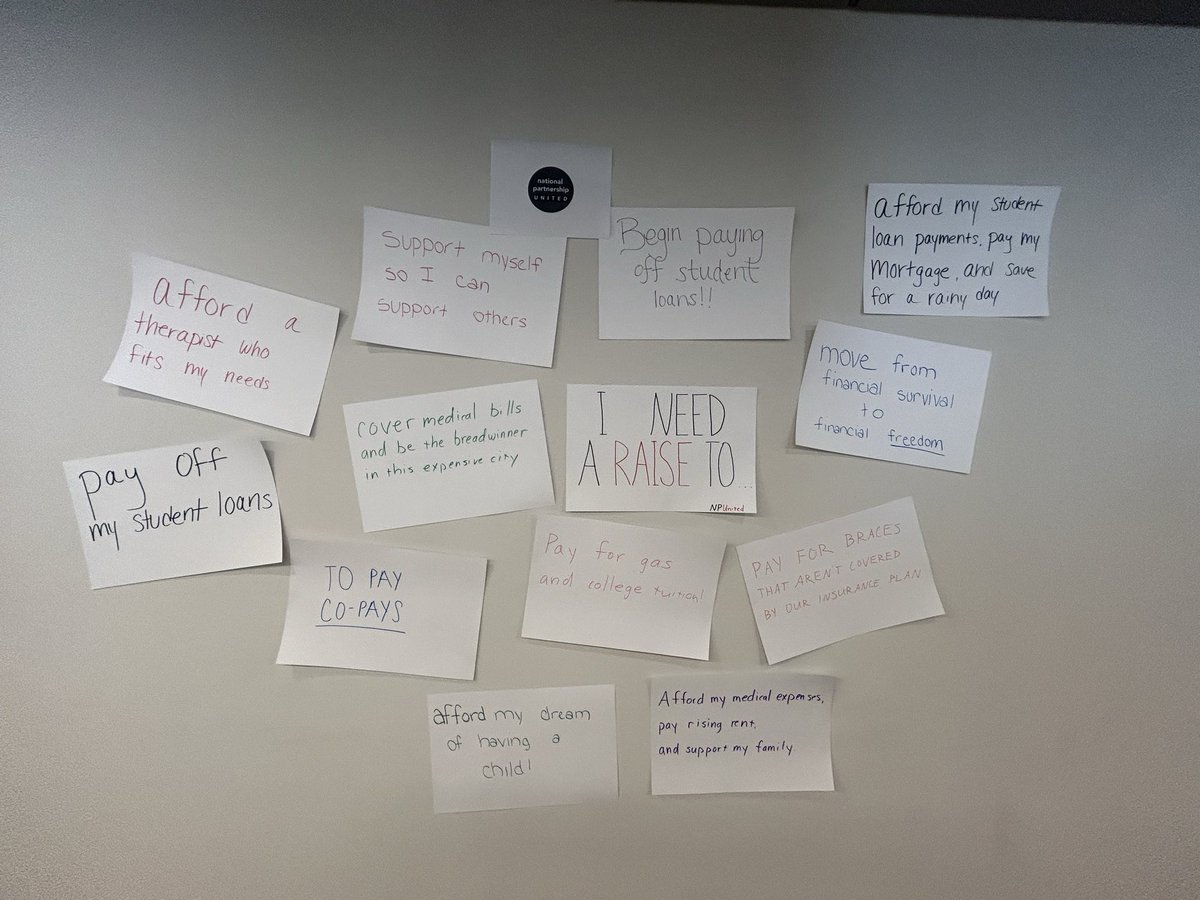 national
partnership
UNITED
Support myself
so I can
support others
Begin paying
off student
loans!!
afford my student
loan payments, pay my
mortgage, and save
for a rainy day
afford a
therapist who
fits my needs
move from
financial survival
to
financial freedom
cover medical bills
and be the breadwinner
in this expensive city
I NEED
A RAISE TO...
NPUnited
pay off
my student loans
TO PAY
CO-PAYS
Pay for gas
and college tuition!
PAY FOR BRACES
THAT AREN'T COVERED
BY OUR INSURANCE PLAN
afford my dream
of having a
child!
Afford my medical expenses,
pay rising rent,
and support my family